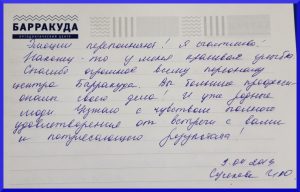 БАРРАКУДА
ОРТОДОНТИЧЕСКИЙ ЦЕНТР
Эмоции переполняют! Я счастлива!
Наконец-то у меня красивая улыбка
Спасибо огромное всему персоналу
центра Барракуда. Вы большие професси-
оналы своего дела! И уже родные
люди. Уезжаю с чувством полного
удовлетворения от встречи с вами
и потрясающего результата!